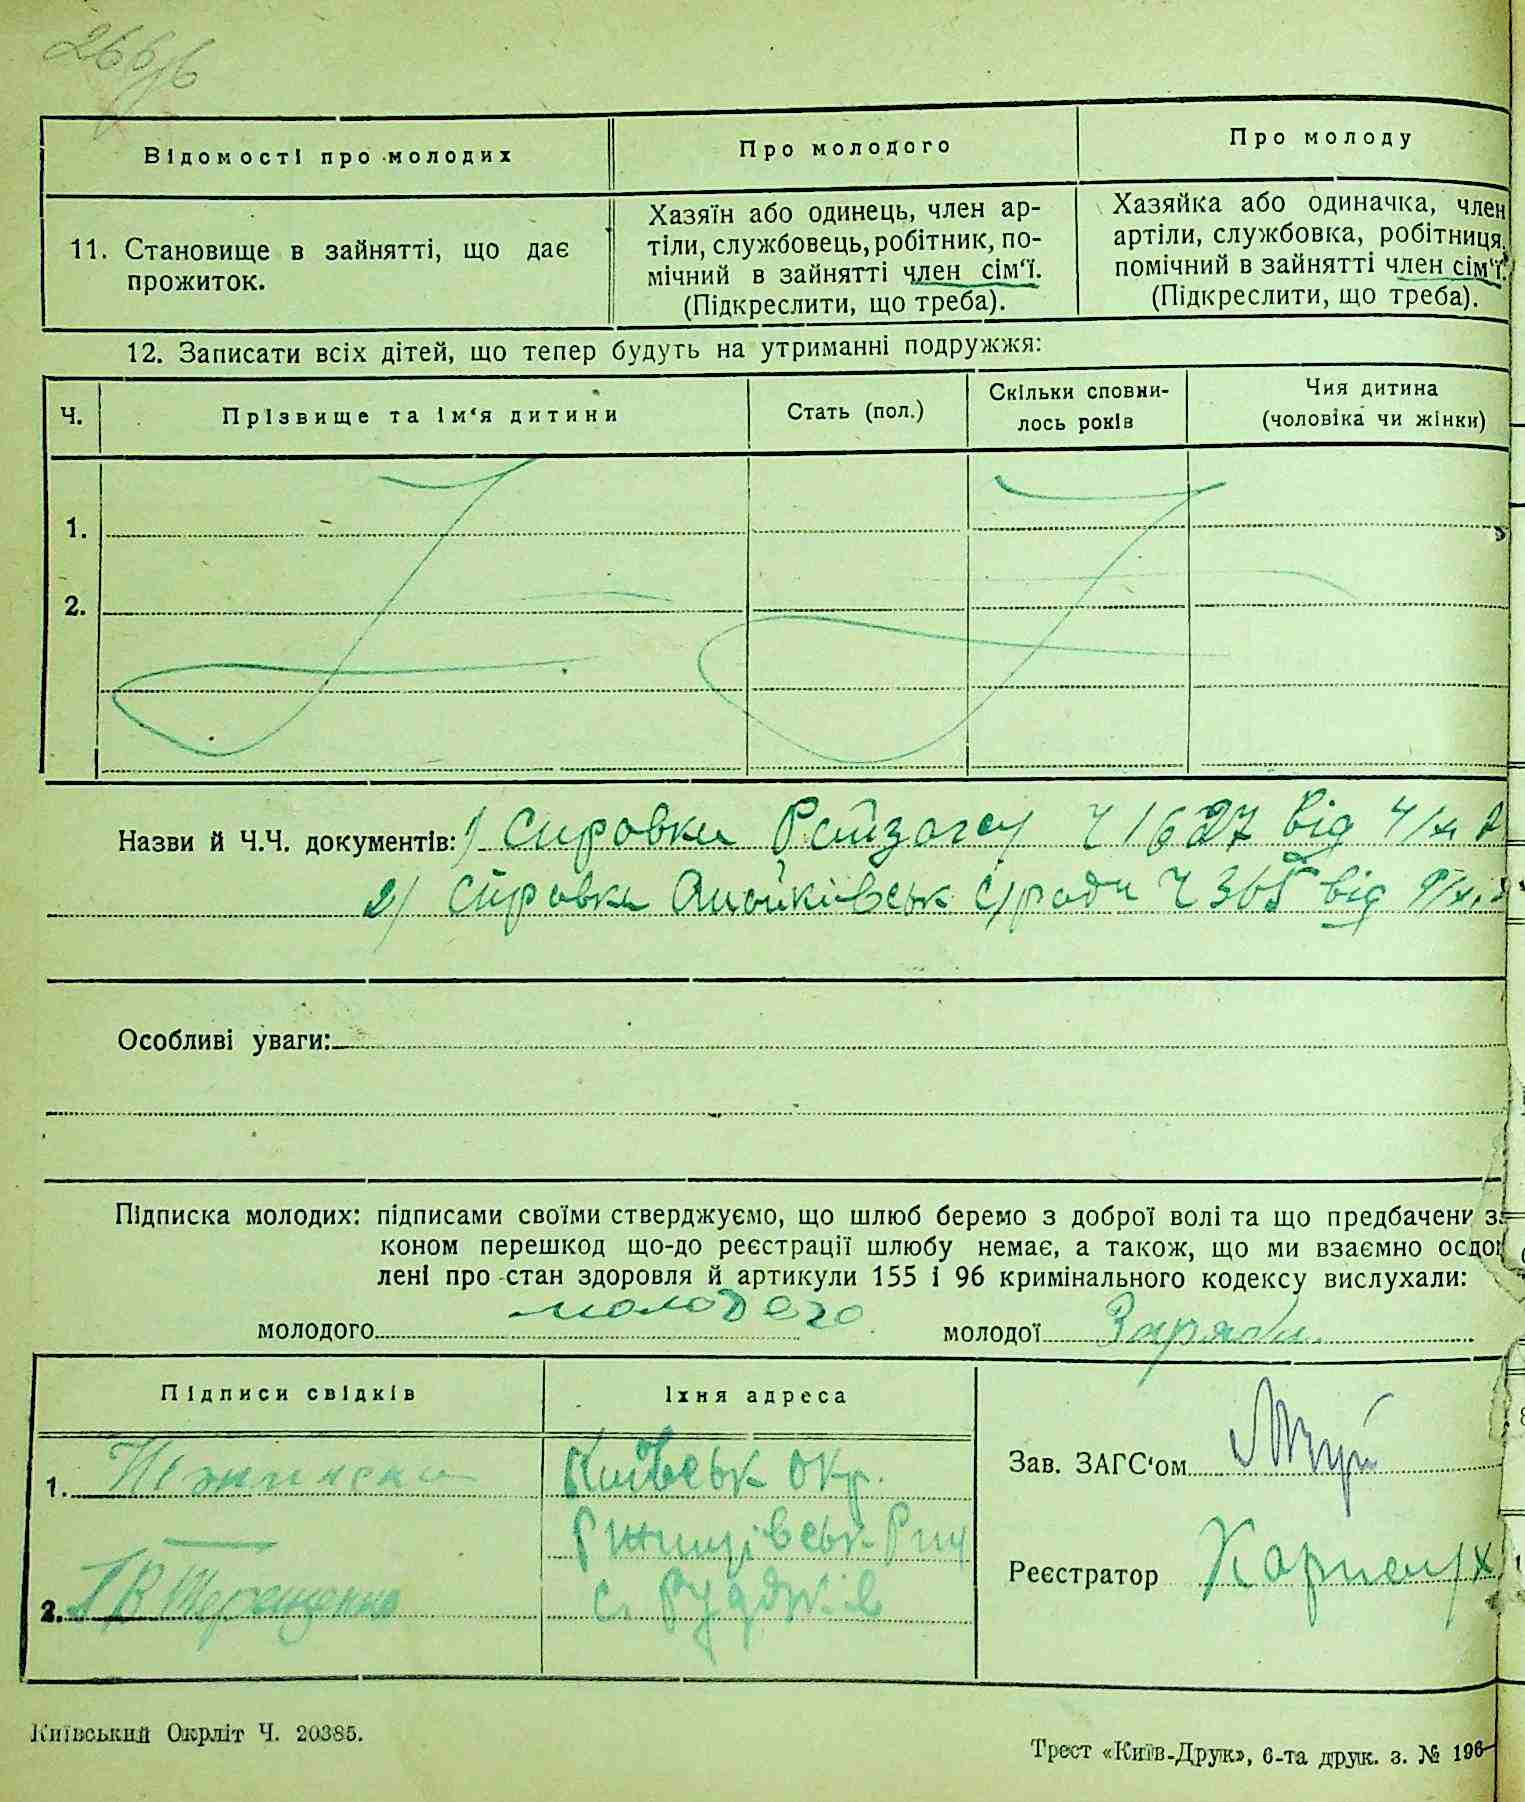 266/6
Відомості про молодих
Про молодого
Про молоду
11. Становище в зайнятті, що дає
прожиток.
Хазяїн або одинець, член ар-
тіли, службовець, робітник, по-
мічний в зайнятті член сім‘ї.
(Підкреслити, що треба).
Хазяйка або одиначка, член
артіли, службовка, робітниця,
помічний в зайнятті член сім‘ї.
(Підкреслити, що треба).
12. Записати всіх дітей, що тепер будуть на утриманні подружжя:
Ч.
Прізвище та ім‘я дитини
Стать (пол.)
Скільки сповни-
лось років
Чия дитина
(чоловіка чи жінки)
1.
2.
Назви й Ч.Ч. документів: 1) Справка Райзагсу Ч 1627 від 4/
2) Справка сради Ч 365 від
Особливі уваги:
Підписка молодих: підписами своїми стверджуємо, що шлюб беремо з доброї волі та що предбачени за
коном перешкод що-до реєстрації шлюбу немає, а також, що ми взаємно осдо
лені про стан здоровля й артикули 155 і 96 кримінального кодексу вислухали:
молодого
молодої
Підписи свідків
Їхня адреса
1.
Київськ окр.
Ржищівськ
2. Терещенко
с.
Зав. ЗАГС‘ом
Реєстратор
Київський Окрліт Ч. 20385.
Трест «Київ-Друк», 6-та друк. з. № 196